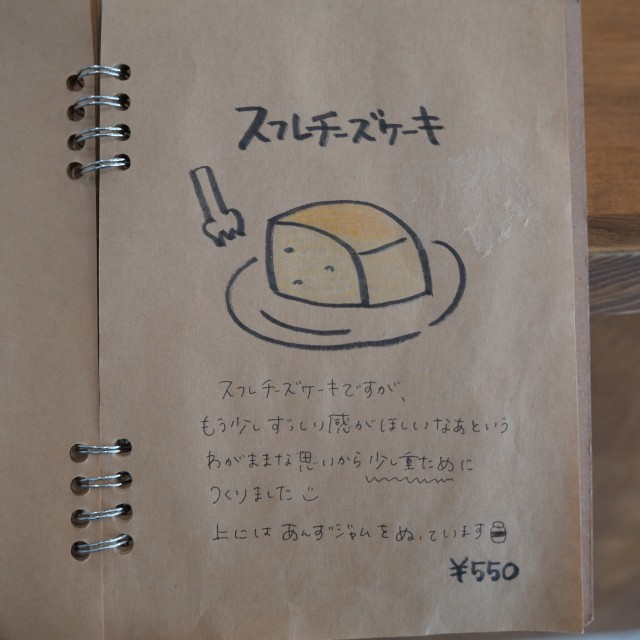 スフレチーズケーキ
スフレチーズケーキですが、
もう少しずっしり感がほしいなあという
わがままな思いから少し重ために
つくりました
上にはあんずジャムをぬっています
¥550